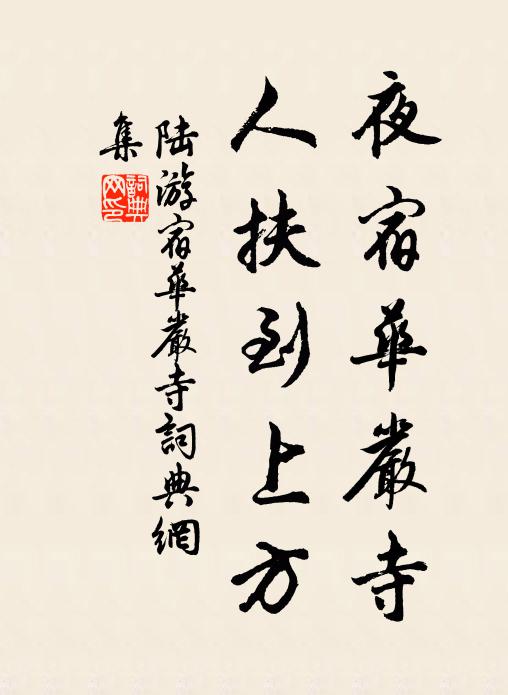 夜宿華嚴寺
人扶到上方
陆游宿華嚴寺詞典網
集
詞典
网印